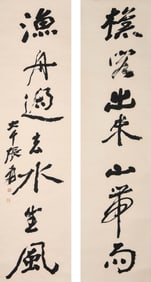 樵客出來山帶雨
漁舟過去水生風
大千張爰